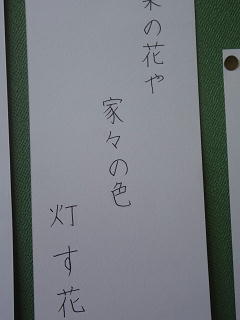 の花や
家々の色
灯す花